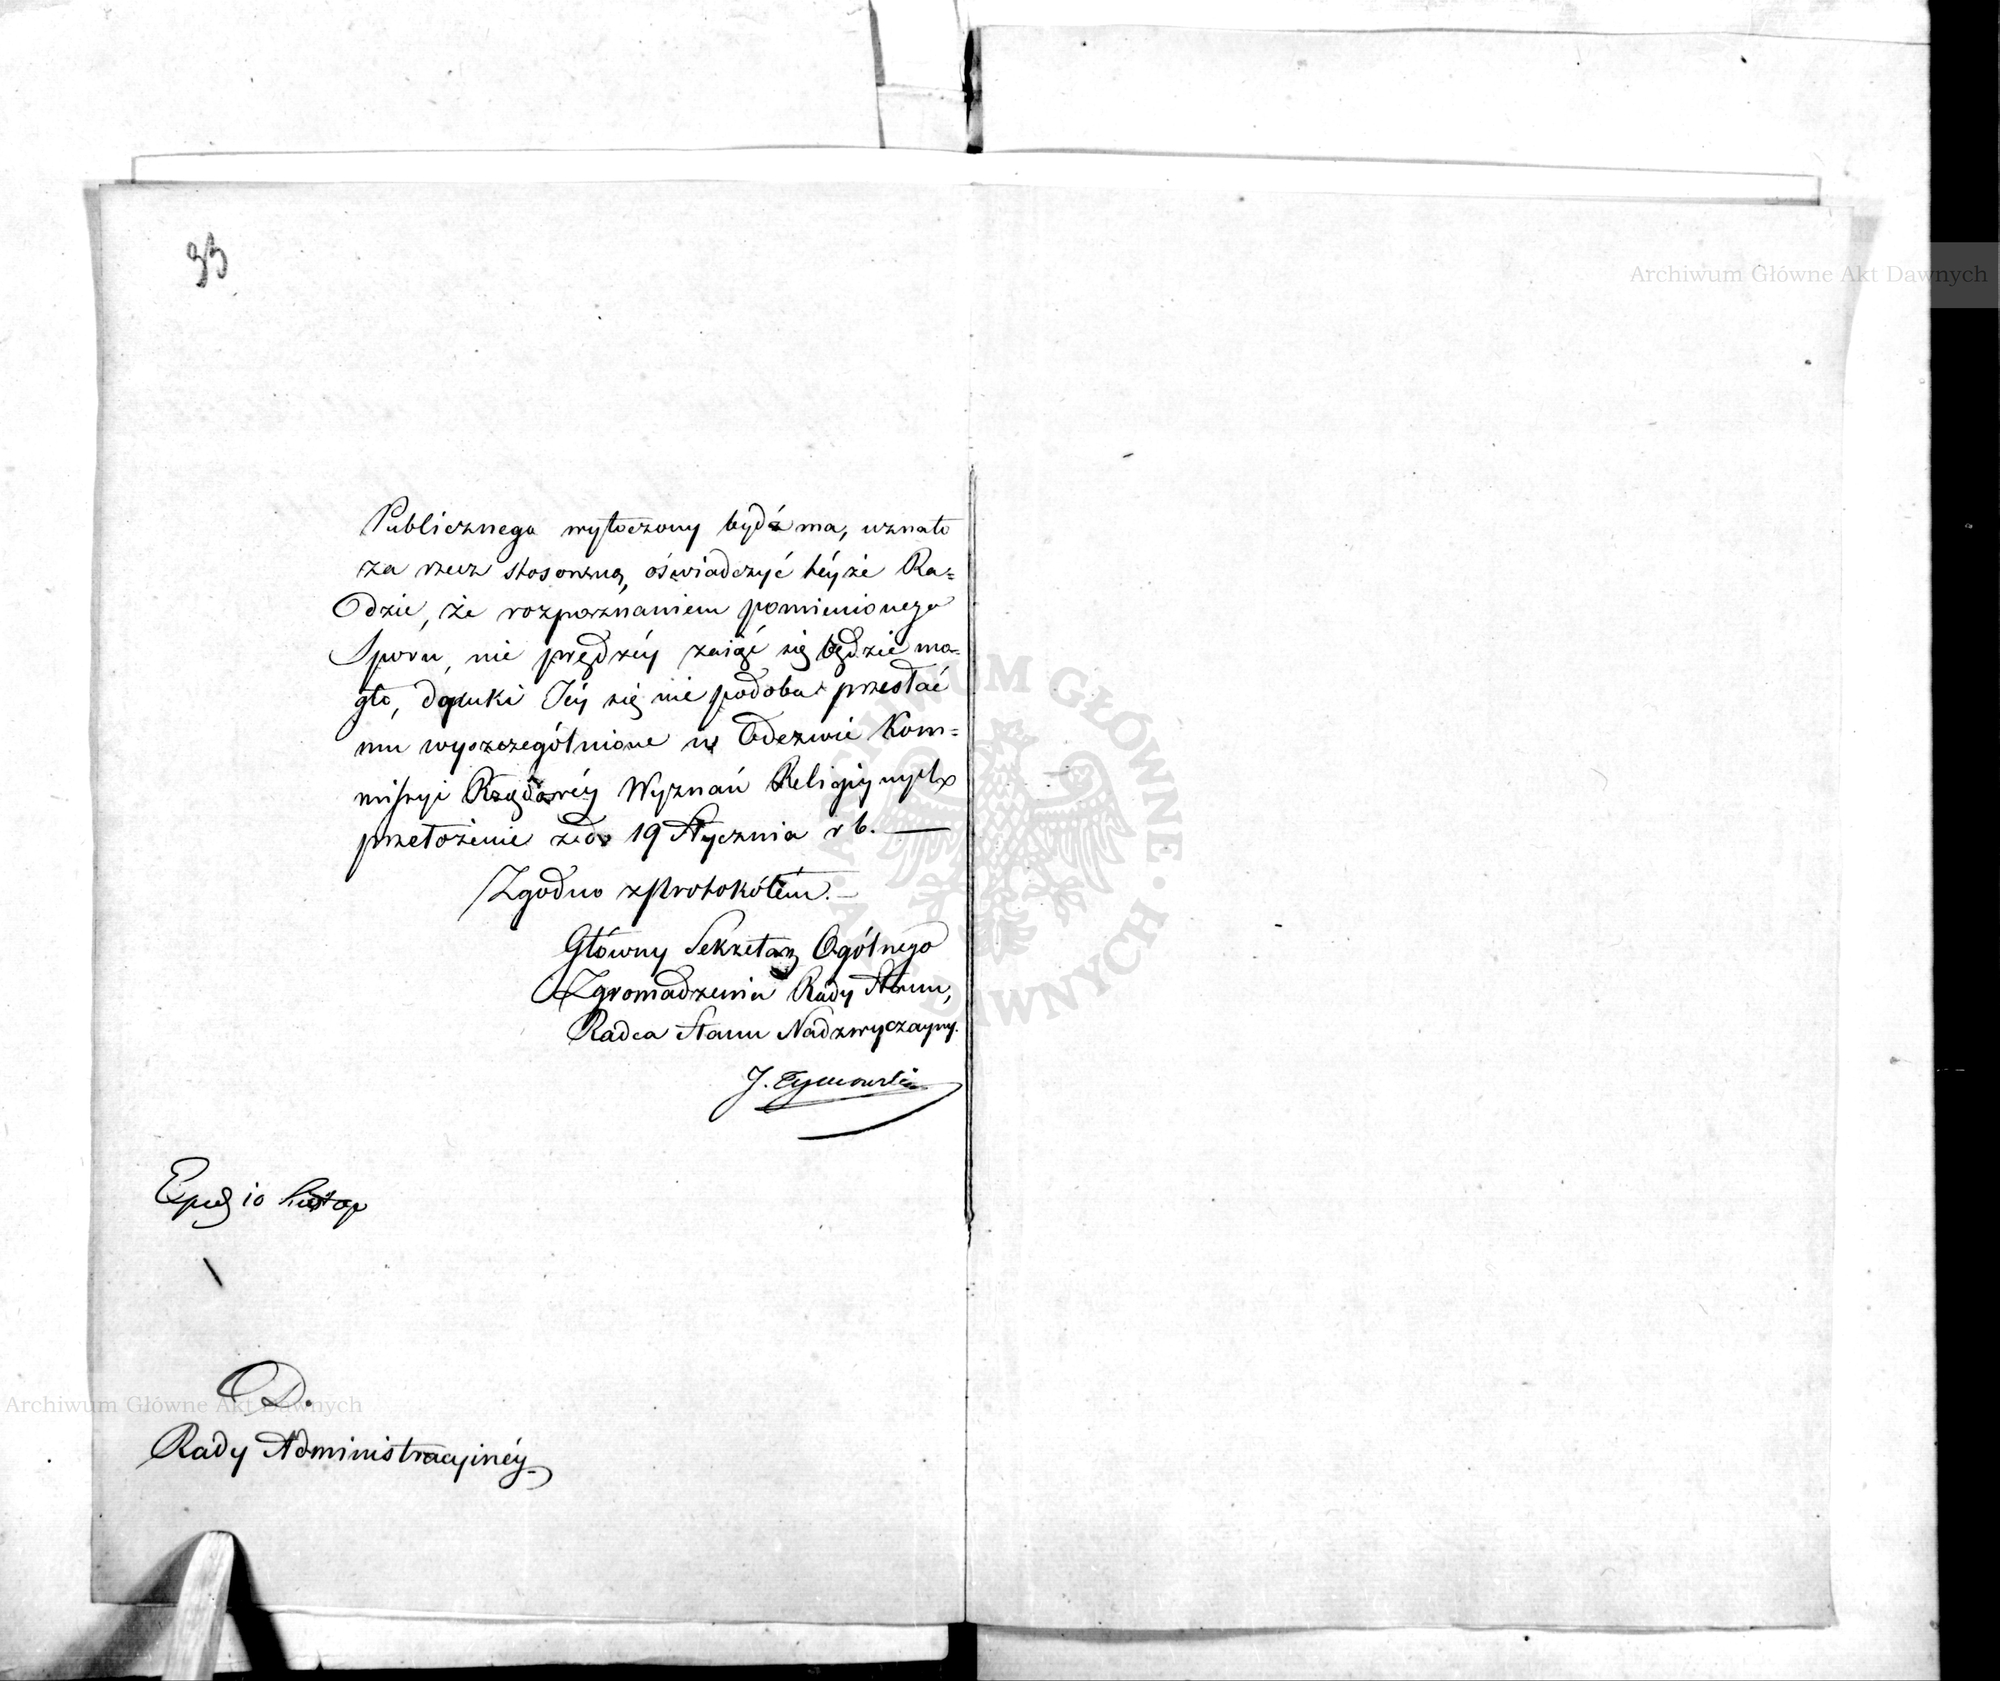 33
Publicznego wytoczony bydź ma, uznało
za rzecz stosowną, oświadczyć téyże Ra=
dzie, że rozpoznaniem pomienionego
Sporu, nie prędzéy zaiąć się będzie mo-
gło, dopuki Jéy się nie podoba przesłać
mu wyszczególnione w Odezwie Kom=
missyi Rządowéy Wyznań Religiynych
przełożenie zeda 19 Stycznia r b. —
Zgodno z Protokółem. —
Główny Sekretarz Ogólnego
Zgromadzenia Rady Stanu,
Radca Stanu Nadzwyczayny.
J. Tymowski
10
D.
Rady Administracyinéy
Archiwum Główne Akt Dawnych
Archiwum Główne Akt Dawnych
ARCHIWUM GŁÓWNE · AKT DAWNYCH ·